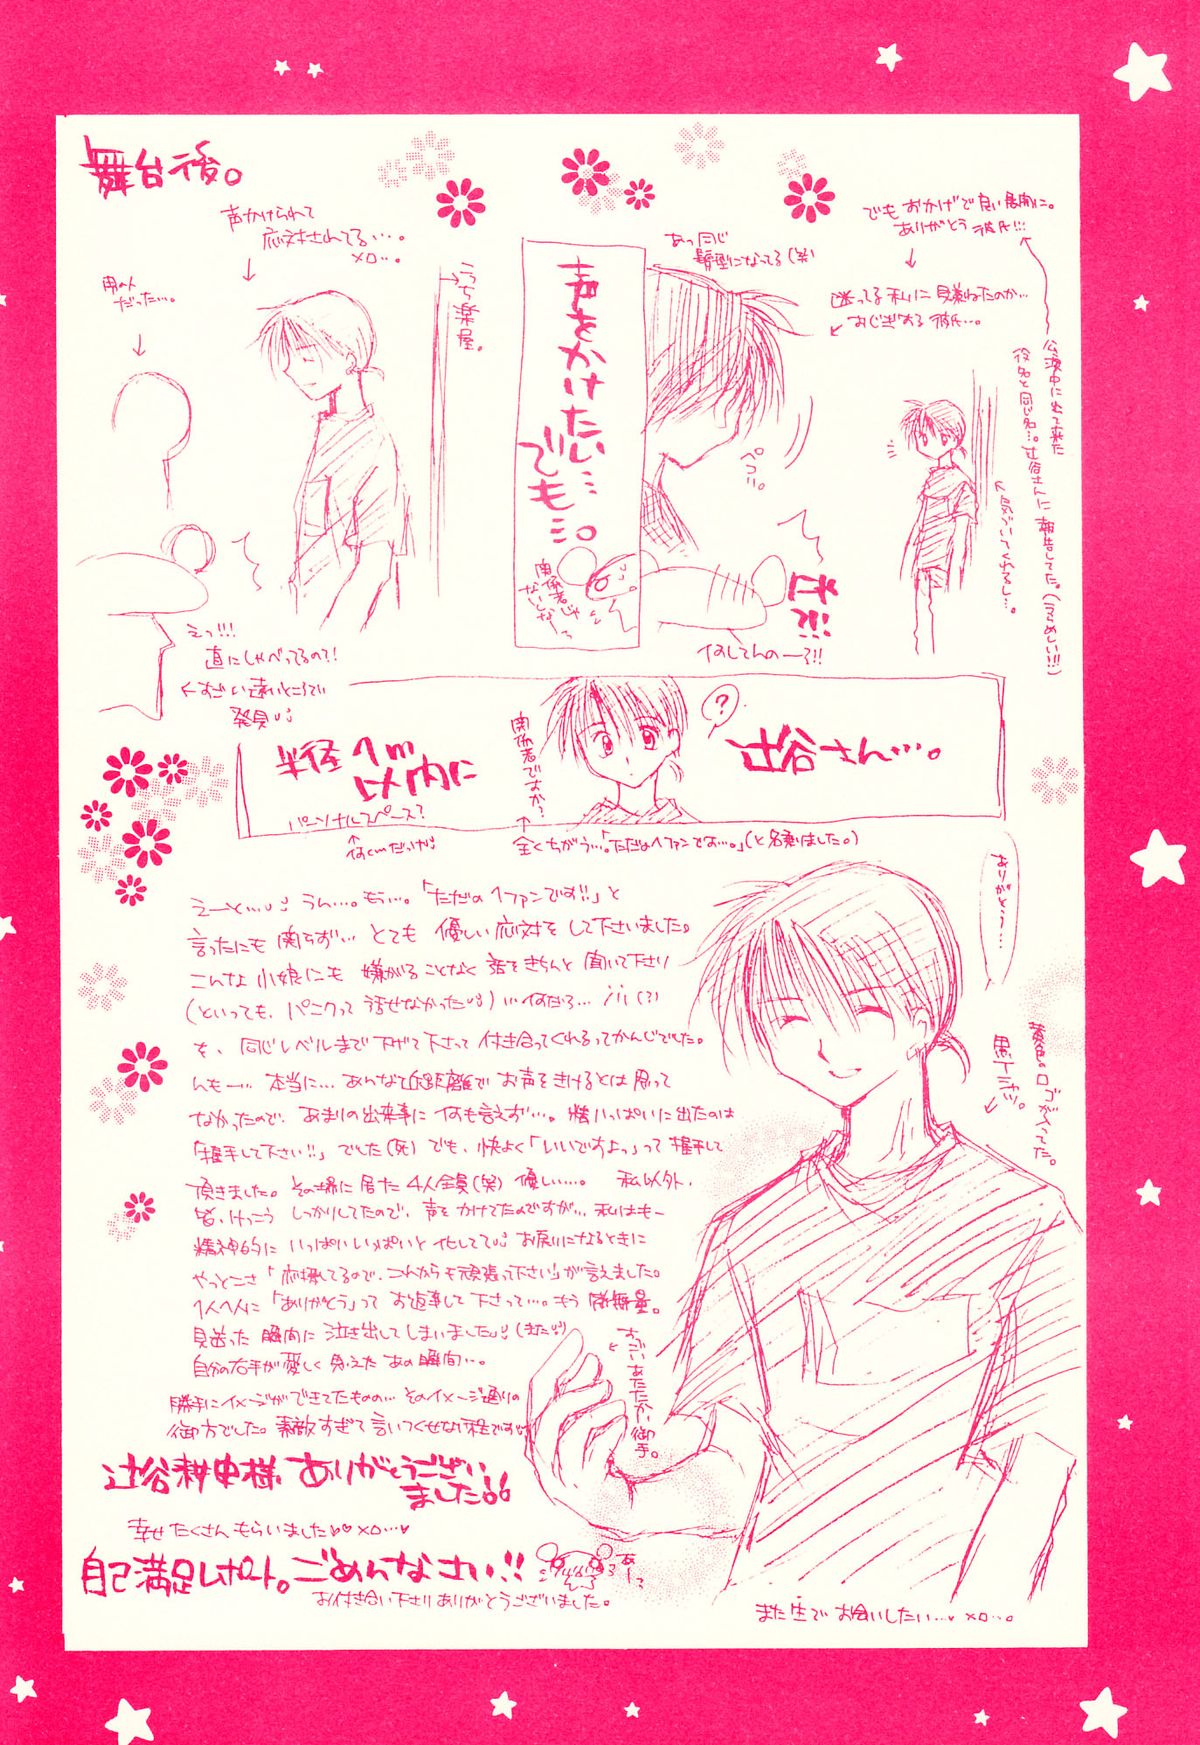 舞台後。
でも おかげで 良い展開に。
ありがとう 彼氏!!!
迷ってる 私に 見兼ねたのか…
おじぎする 彼氏…。
公演中に出て来た
役名と同じ名…。辻谷さんに 報告してた。(うらめしい!!)
あっ同じ
髪型になってる(笑)
ペコリ。
何してんのーっ!!
声をかけたい…
でも…。
関係者じゃ
ないしなーっ
うち楽屋。
声かけられて
応対されてる…。
×□…。
男の人
だった…。
えっ!!!
直にしゃべってるの?!
すごい遠いところで
発見
辻谷さん…。
?
関係者ですか?
半径1m
以内に
パーソナルスペース?
全くちがう…。「ただの1ファンです…。」(と名乗りました。)
えーと… うん…。もぅ…。「ただの1ファンです!!」と
言ったにも関らず… とても 優しい応対をして下さいました。
こんな小娘にも 嫌がることなく 話をきちんと 聞いて下さり
(といっても、パニクって 話せなかった) …何だろ…
を、同じレベルまで下げて下さって 付き合ってくれるってかんじでした。
んもー… 本当に… あんな近距離で お声をきけるとは 思って
なかったので、あまりの出来事に 何も言えず…。精いっぱいに出たのは
「握手して下さい!!」でした(死) でも、快よく「いいですよっ」って 握手して
頂きました。その場に居た 4人全員(笑) 優しい…。 私以外、
皆、けっこう しっかりしてたので、声を かけてたのですが… 私はもー
精神的に いっぱいいっぱいと 化してて お戻りになるときに
やっとこさ「応援してるので、これからも頑張って下さい」が言えました。
1人1人に「ありがとう」って お返事して下さって…。もう 感無量。
見送った 瞬間に 泣き出してしまいました
自分の右手が愛しく 見えた あの瞬間…。
勝手にイメージができてたものの… そのイメージ通りの
御方でした。素敵すぎて 言いつくせない程です
ありがとう…
黄色のロゴが入ってた。
黒Tシャツ。
すごいあたたかい御手。
辻谷耕史様、ありがとうござい
ました!!
幸せ たくさん もらいました ×□…
自己満足レポート。ごめんなさい!!
お付き合い下さり ありがとうございました。
また生で お会いしたい… ×□…。